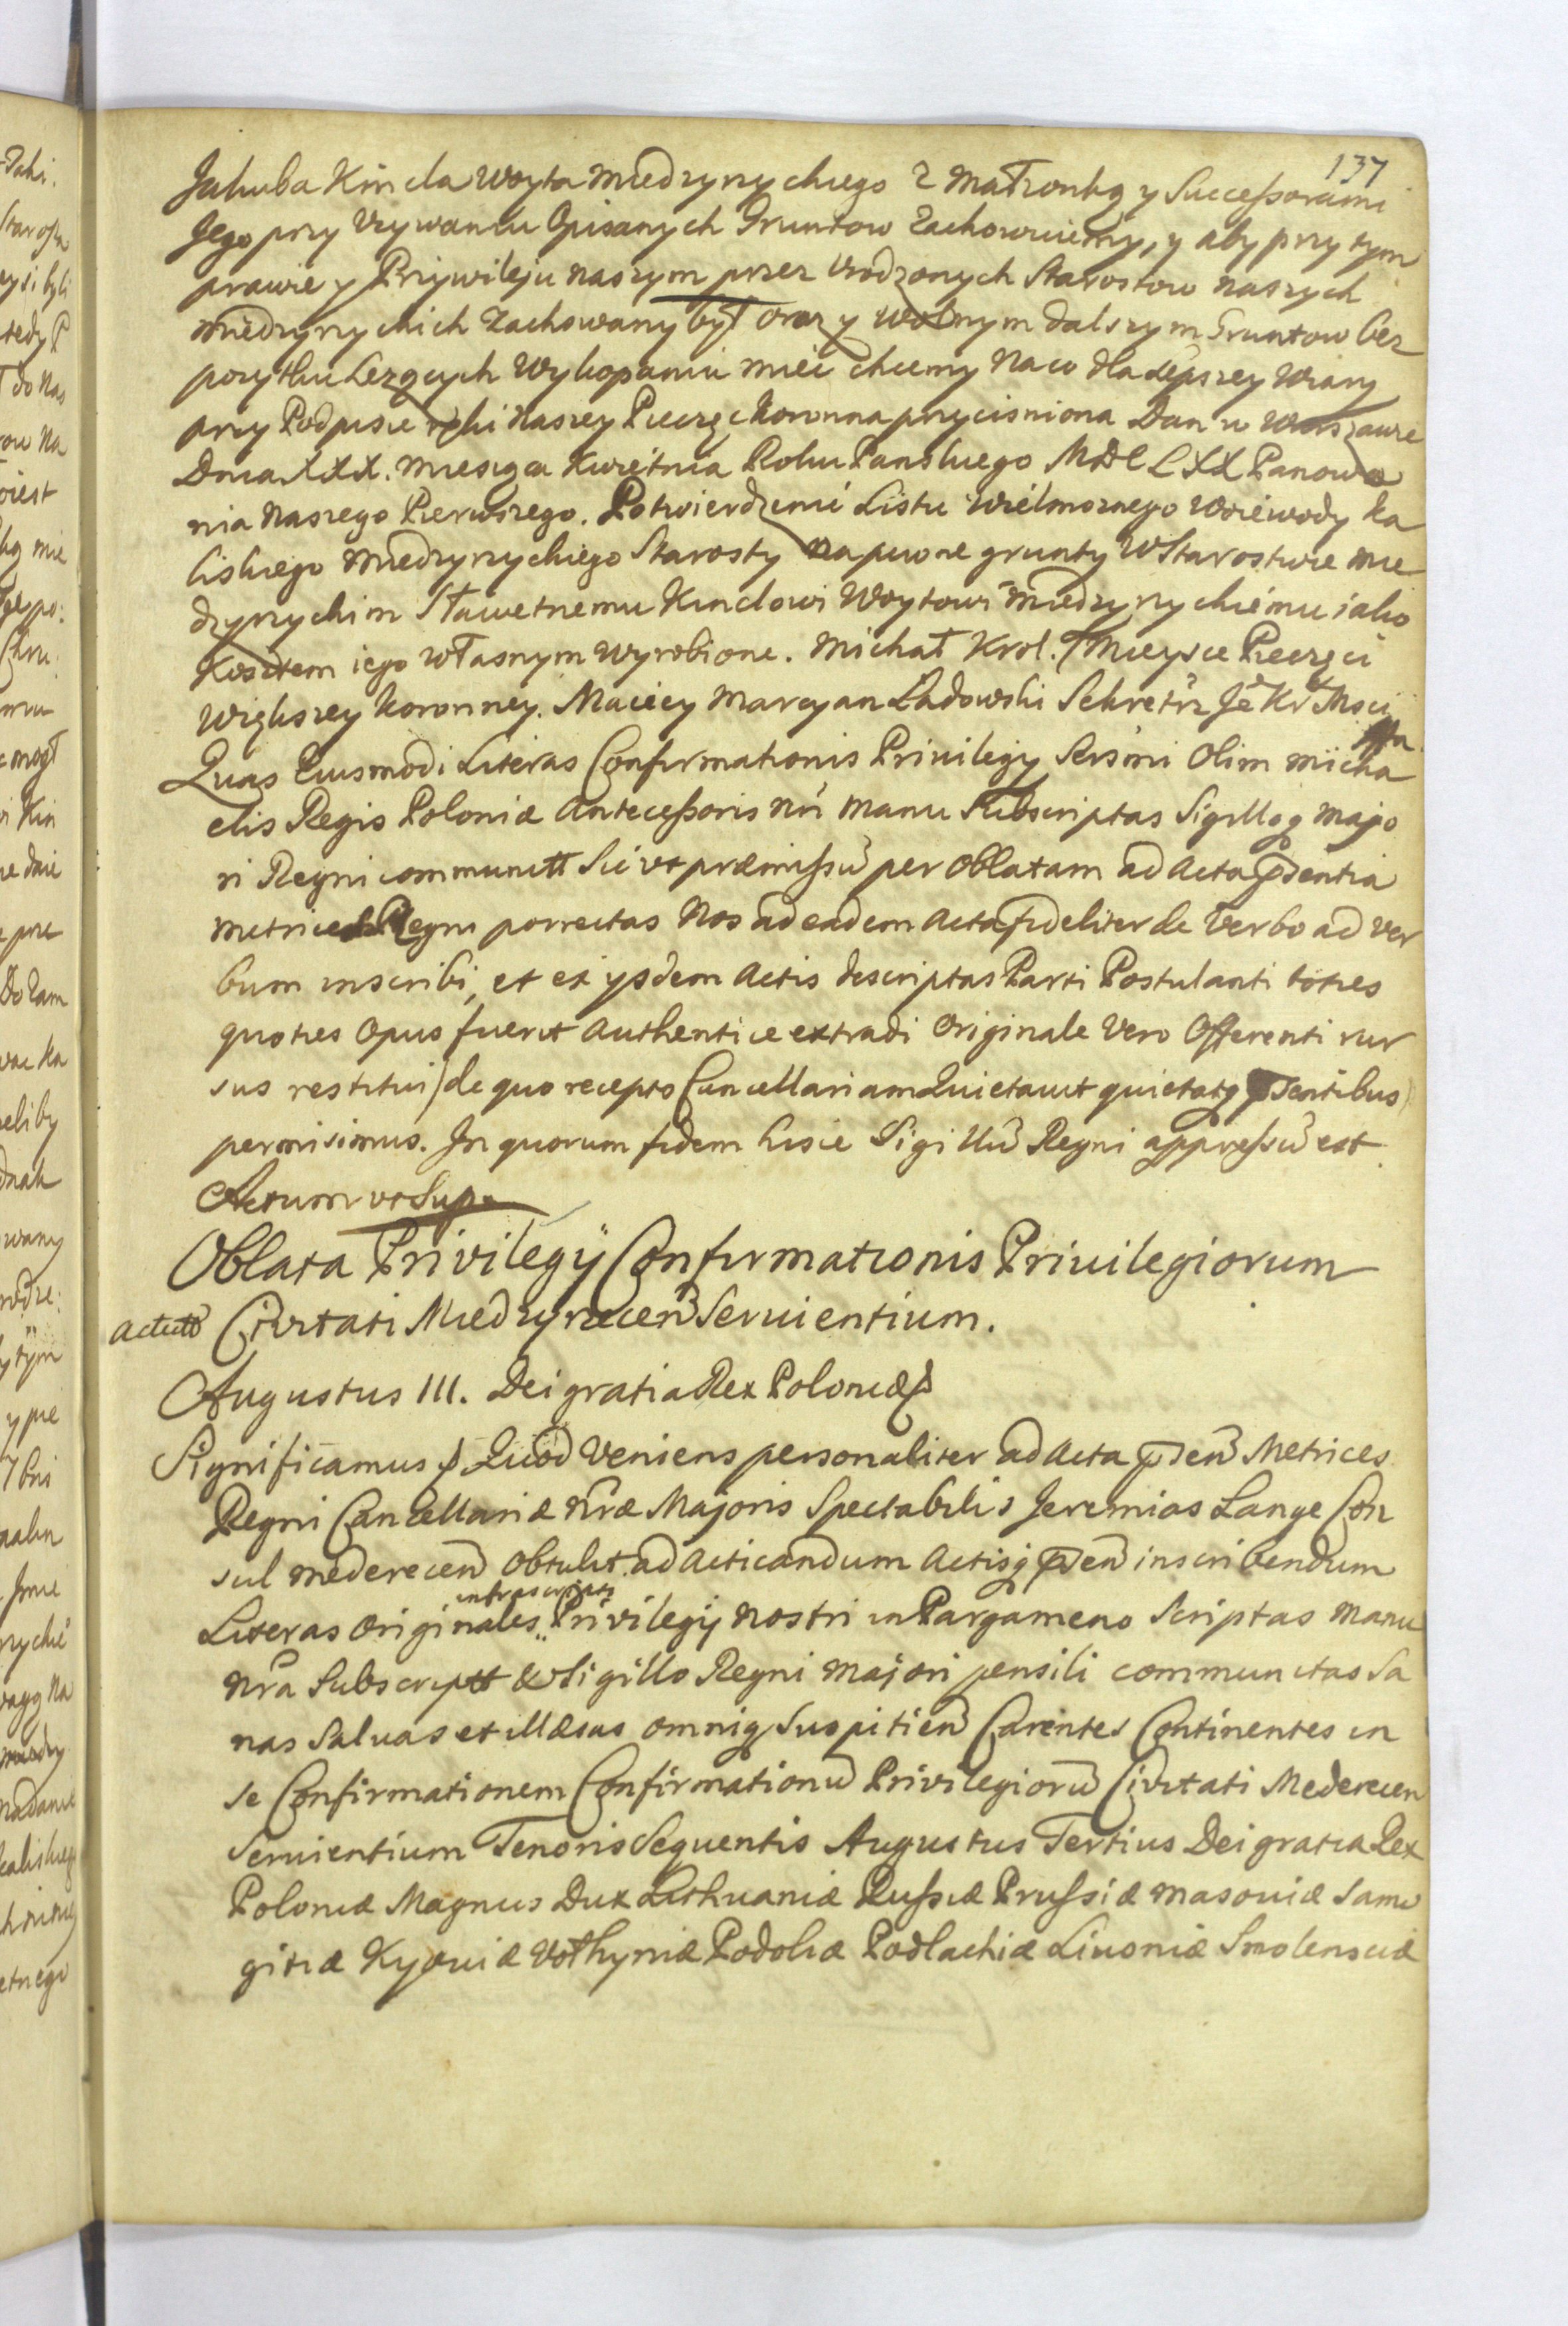 137
Jakuba Kincla woyta miedzyrzyckiego z małzonką y Successorami
Jego przy Uzywaniu Opisanych Gruntow Zachowuiemy, y aby przy tym
prawie y Przywileju naszym przez Urodzonych Starostow naszych
miedzyrzyckich Zachowany był oraz y wolnym dalszym Gruntow bez
pozytku Lezących Wykopaniu miec chcemy Na co dla Lepszey Wiary
przy Podpisie ręki Naszey Pieczęc koronna przycisniona Dan w Warszawie
Dnia XXX. miesiąca Kwietnia Roku Panskiego MDCLXX Panowa
nia Naszego Pierwszego. Potwierdzenie Listu Wielmoznego Woiewody ka
liskiego miedzyrzyckiego Starosty na pewne grunty W Starostwie mie
dzyrzyckim Sławetnemu Kinclowi Woytowi miedzyrzyckiemu iako
Kosztem iego własnym wyrobione. Michał Krol. (Mieysce Pieczęci
Większey koronney. Maciey Marcyan Ładowski Sekretrz Je Kr Msci
Quas Eiusmodi Literas Confirmationis Privilegy Sersmi Olim micha
elis Regis Poloniæ Antecessoris nri manu Subscriptas Sigilloq majo
ri Regni communitt Sic ut præmissū per Oblatam ad Acta psentia
metrices Regni porrectas Nos ad eadem Acta fideliter de Verbo ad Ver
bum inscribi, et ex ysdem Actis descriptas Parti Postulanti toties
quoties Opus fuerit Authentice extradi Originale Vero Offerenti rur
sus restitui (de quo recepto Cancellariam Quietavit quietatq psentibus)
permisimus. In quorum fidem hisce Sigillū Regni appressū est
Actum ut Supa
Oblata Privilegÿ Confirmationis Privilegiorum
Civitati Miedzyrecen Servientium.
Augustus III. Dei gratia Rex Poloniæ
Significamus Quod Veniens personaliter ad Acta psen Metrices
Regni Cancellariæ nræ Majoris Spectabilis Jeremias Lange Con
sul mederecen Obtulit ad Acticandum Actisq psen inscribendum
infrascripti
Literas Originales Privilegij nostri in Pargameno Scriptas manu
nra Subscriptt & Sigillo Regni majori pensili communitas Sa
nas Salvas et illæsas omniq Suspitien Carentes Continentes in
se Confirmationem Confirmationū Privilegiorū Civitati Mederecen
Servientium Tenoris Sequentis Augustus Tertius Dei gratia Rex
Poloniæ Magnus Dux Lithuaniæ Russiæ Prussiæ Masoviæ Samo
gitiæ Kyoviæ Volhyniæ Podoliæ Podlachiæ Livoniæ Smolensciæ